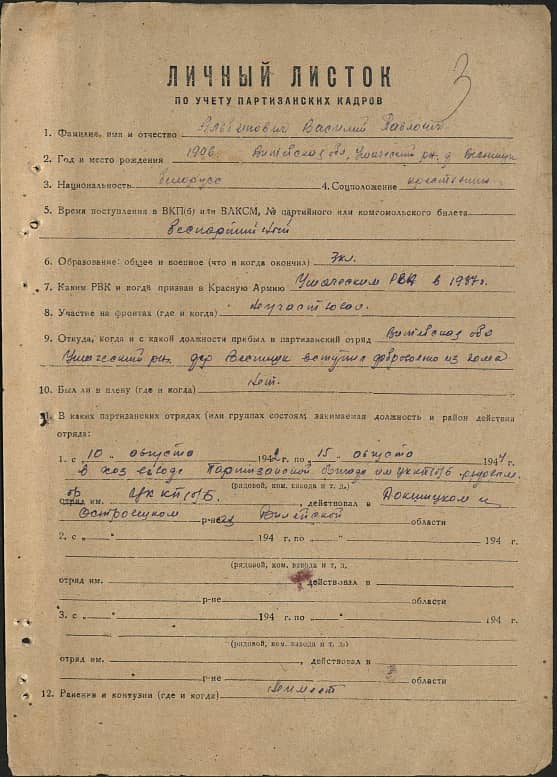 3
ЛИЧНЫЙ ЛИСТОК
ПО УЧЕТУ ПАРТИЗАНСКИХ КАДРОВ
1. Фамилия, имя и отчество Василий Павлович
2. Год и место рождения 1906 Витебская обл, Ушачский рн. д.
3. Национальность белорусс 4. Соцположение крестьянин
5. Время поступления в ВКП(б) или ВЛКСМ, № партийного или комсомольского билета
беспартийный
6. Образование: общее и военное (что и когда окончил) 3кл.
7. Каким РВК и когда призван в Красную Армию Ушачским РВК в
8. Участие на фронтах (где и когда) Не участвовал.
9. Откуда, когда и с какой должности прибыл в партизанский отряд Витебская обл
Ушачский рн. дер вступил добровольно из дома
10. Был ли в плену (где и когда) Нет.
11. В каких партизанских отрядах (или группах состоял; занимаемая должность и район действия
отряда:
1. с „10„ августа 1942 г. по „15„ августа 1944 г.
в хоз взводе Партизанской бригаде им ЦК КП(б)Б рядовым.
(рядовой, ком. взвода и т. д.)
отряд им. ЦК КП(б)Б , действовал в Докшицком и
р-не Вилейской области
2. с „ „ 194 г. по „ 194 г.
(рядовой, ком. взвода и т. д.
отряд им. действовал в
р-не области
3. с „ „ 194 г. по „ 194 г.
(рядовой, ком. взвода и т. д.)
отряд им. , действовал в
р-не области
12. Ранения и контузии (где и когда) Не имеет